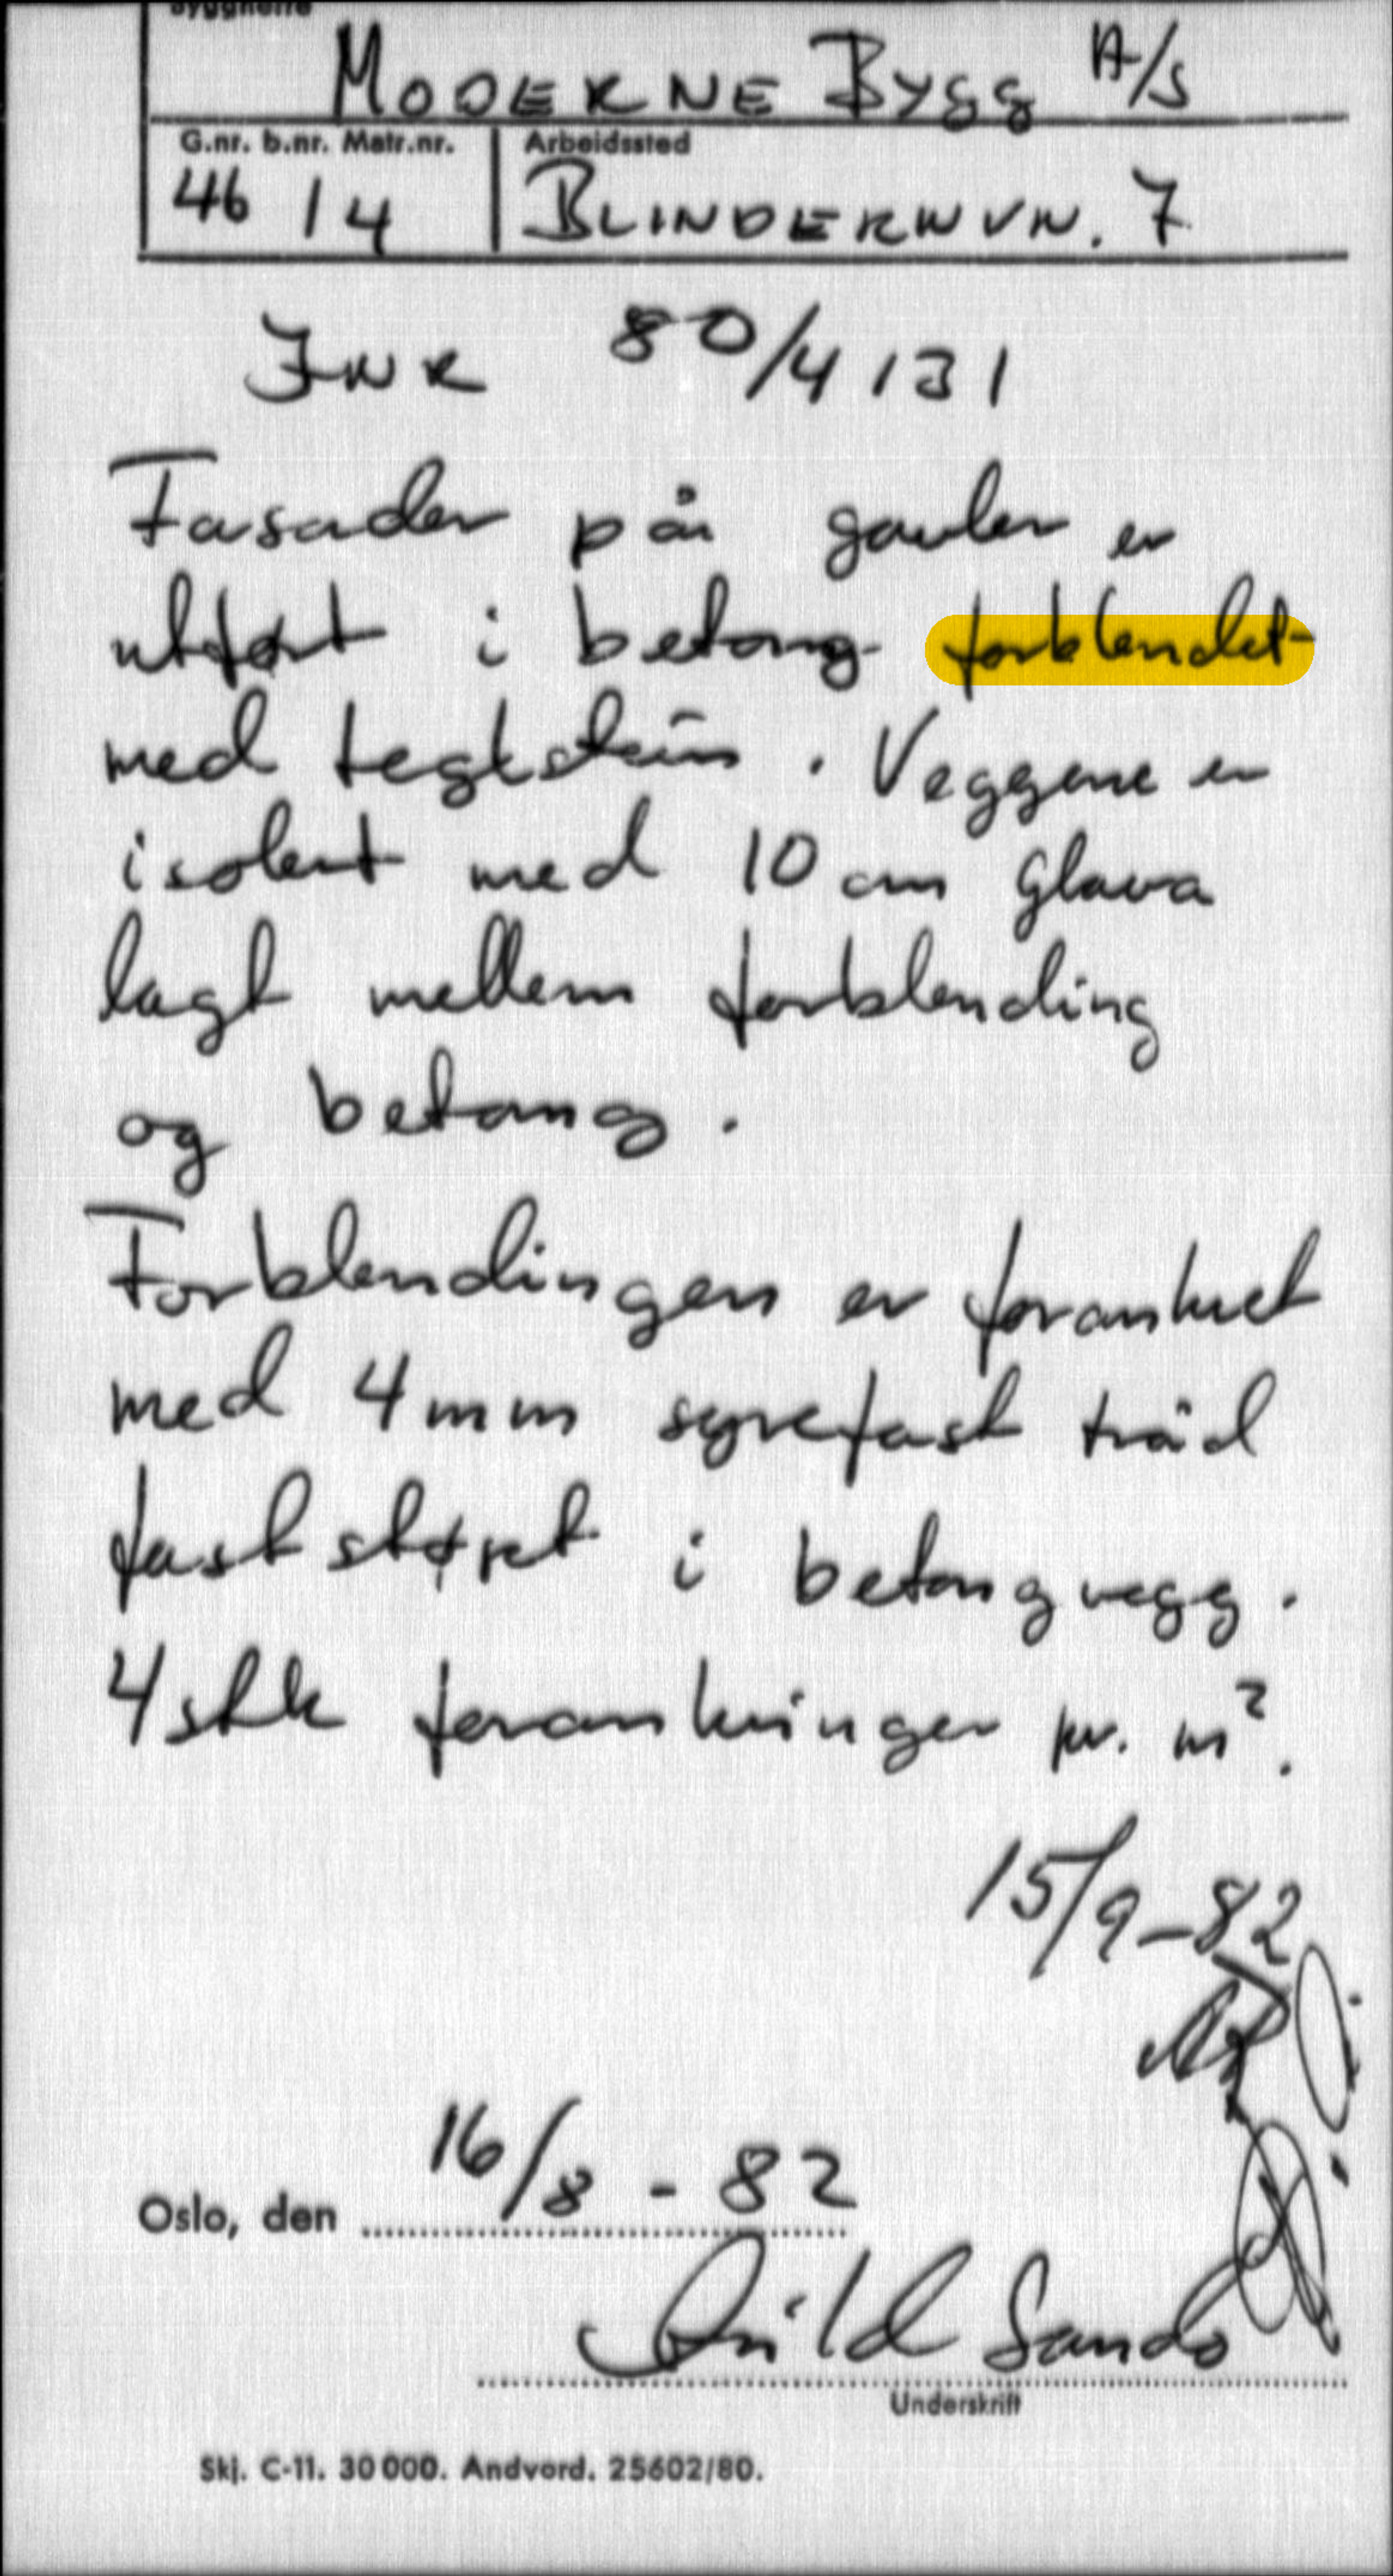 Byggherre
MODERNE BYGG A/S
G.nr. b.nr. Matr.nr. Arbeidssted
46 14 BLINDERNVN. 7
JNR 80/4131
Fasader på gavler er
utført i betong forblendet
med teglstein. Veggene er
isolert med 10 cm Glava
lagt mellem forblending
og betong.
Forblendingen er forankret
med 4 mm syrefast tråd
fast støpt i betongvegg.
4 stk forankringer pr. m².
15/9-82
Oslo, den 16/8 - 82
Underskrift
Skj. C-11. 30 000. Andvord. 25602/80.